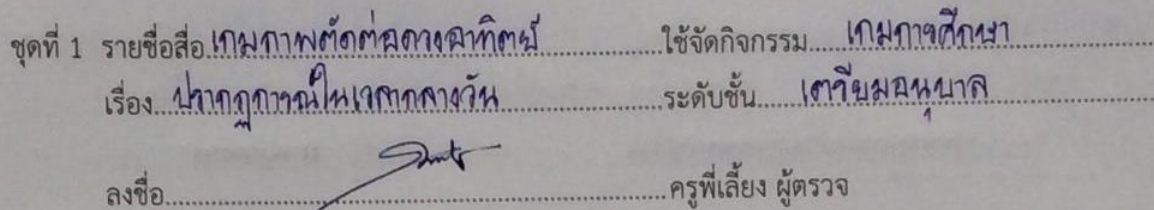 ชุดที่ 1 รายชื่อสื่อ เกมภาพตัดต่อดวงอาทิตย์ ใช้จัดกิจกรรม เกมการศึกษา
เรื่อง ปรากฏการณ์ในเวลากลางวัน ระดับชั้น เตรียมอนุบาล
ลงชื่อ ครูพี่เลี้ยง ผู้ตรวจ